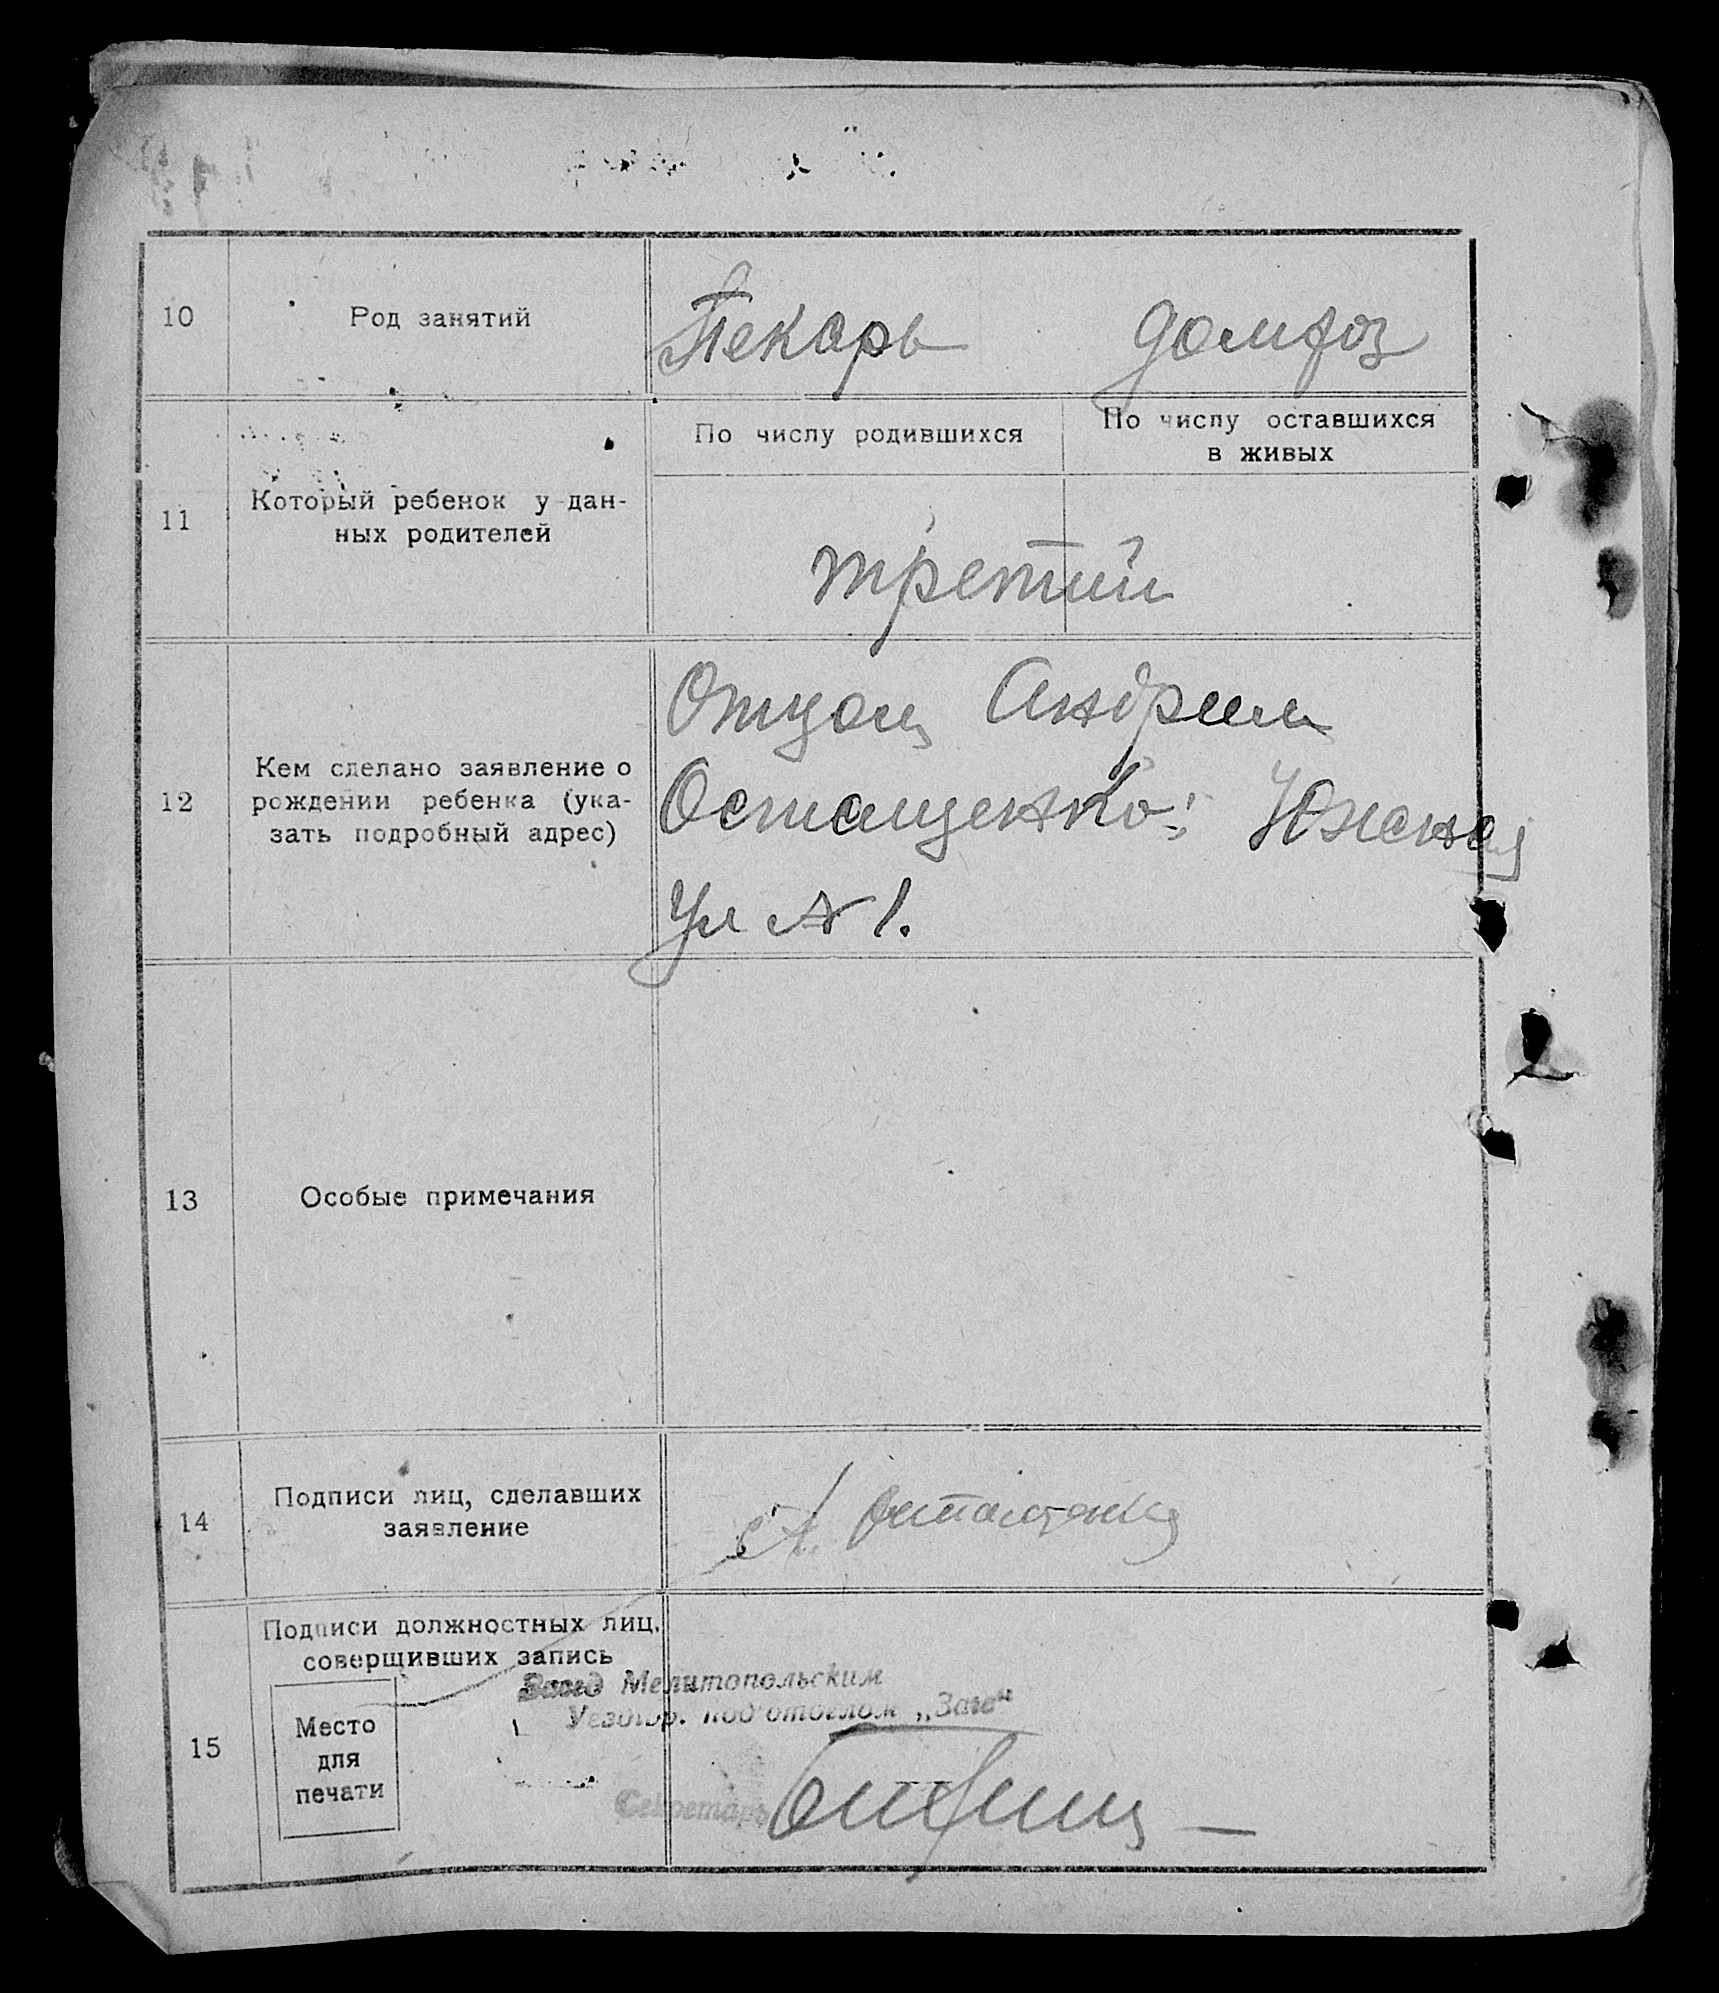 10
Род занятий
Пекарь
домхоз
По числу родившихся
По числу оставшихся
в живых
11
Который ребенок у дан-
ных родителей
третий
12
Кем сделано заявление о
рождении ребенка (ука-
зать подробный адрес)
Отцом Андреем
Осташенко: Южная
Ул № 1.
13
Особые примечания
14
Подписи лиц, сделавших
заявление
А Осташенко
15
Подписи должностных лиц,
соверщивших запись
Место
для
печати
Завед Мелитопольским
Уездгор. под'отделом „Загс“
Секретарь